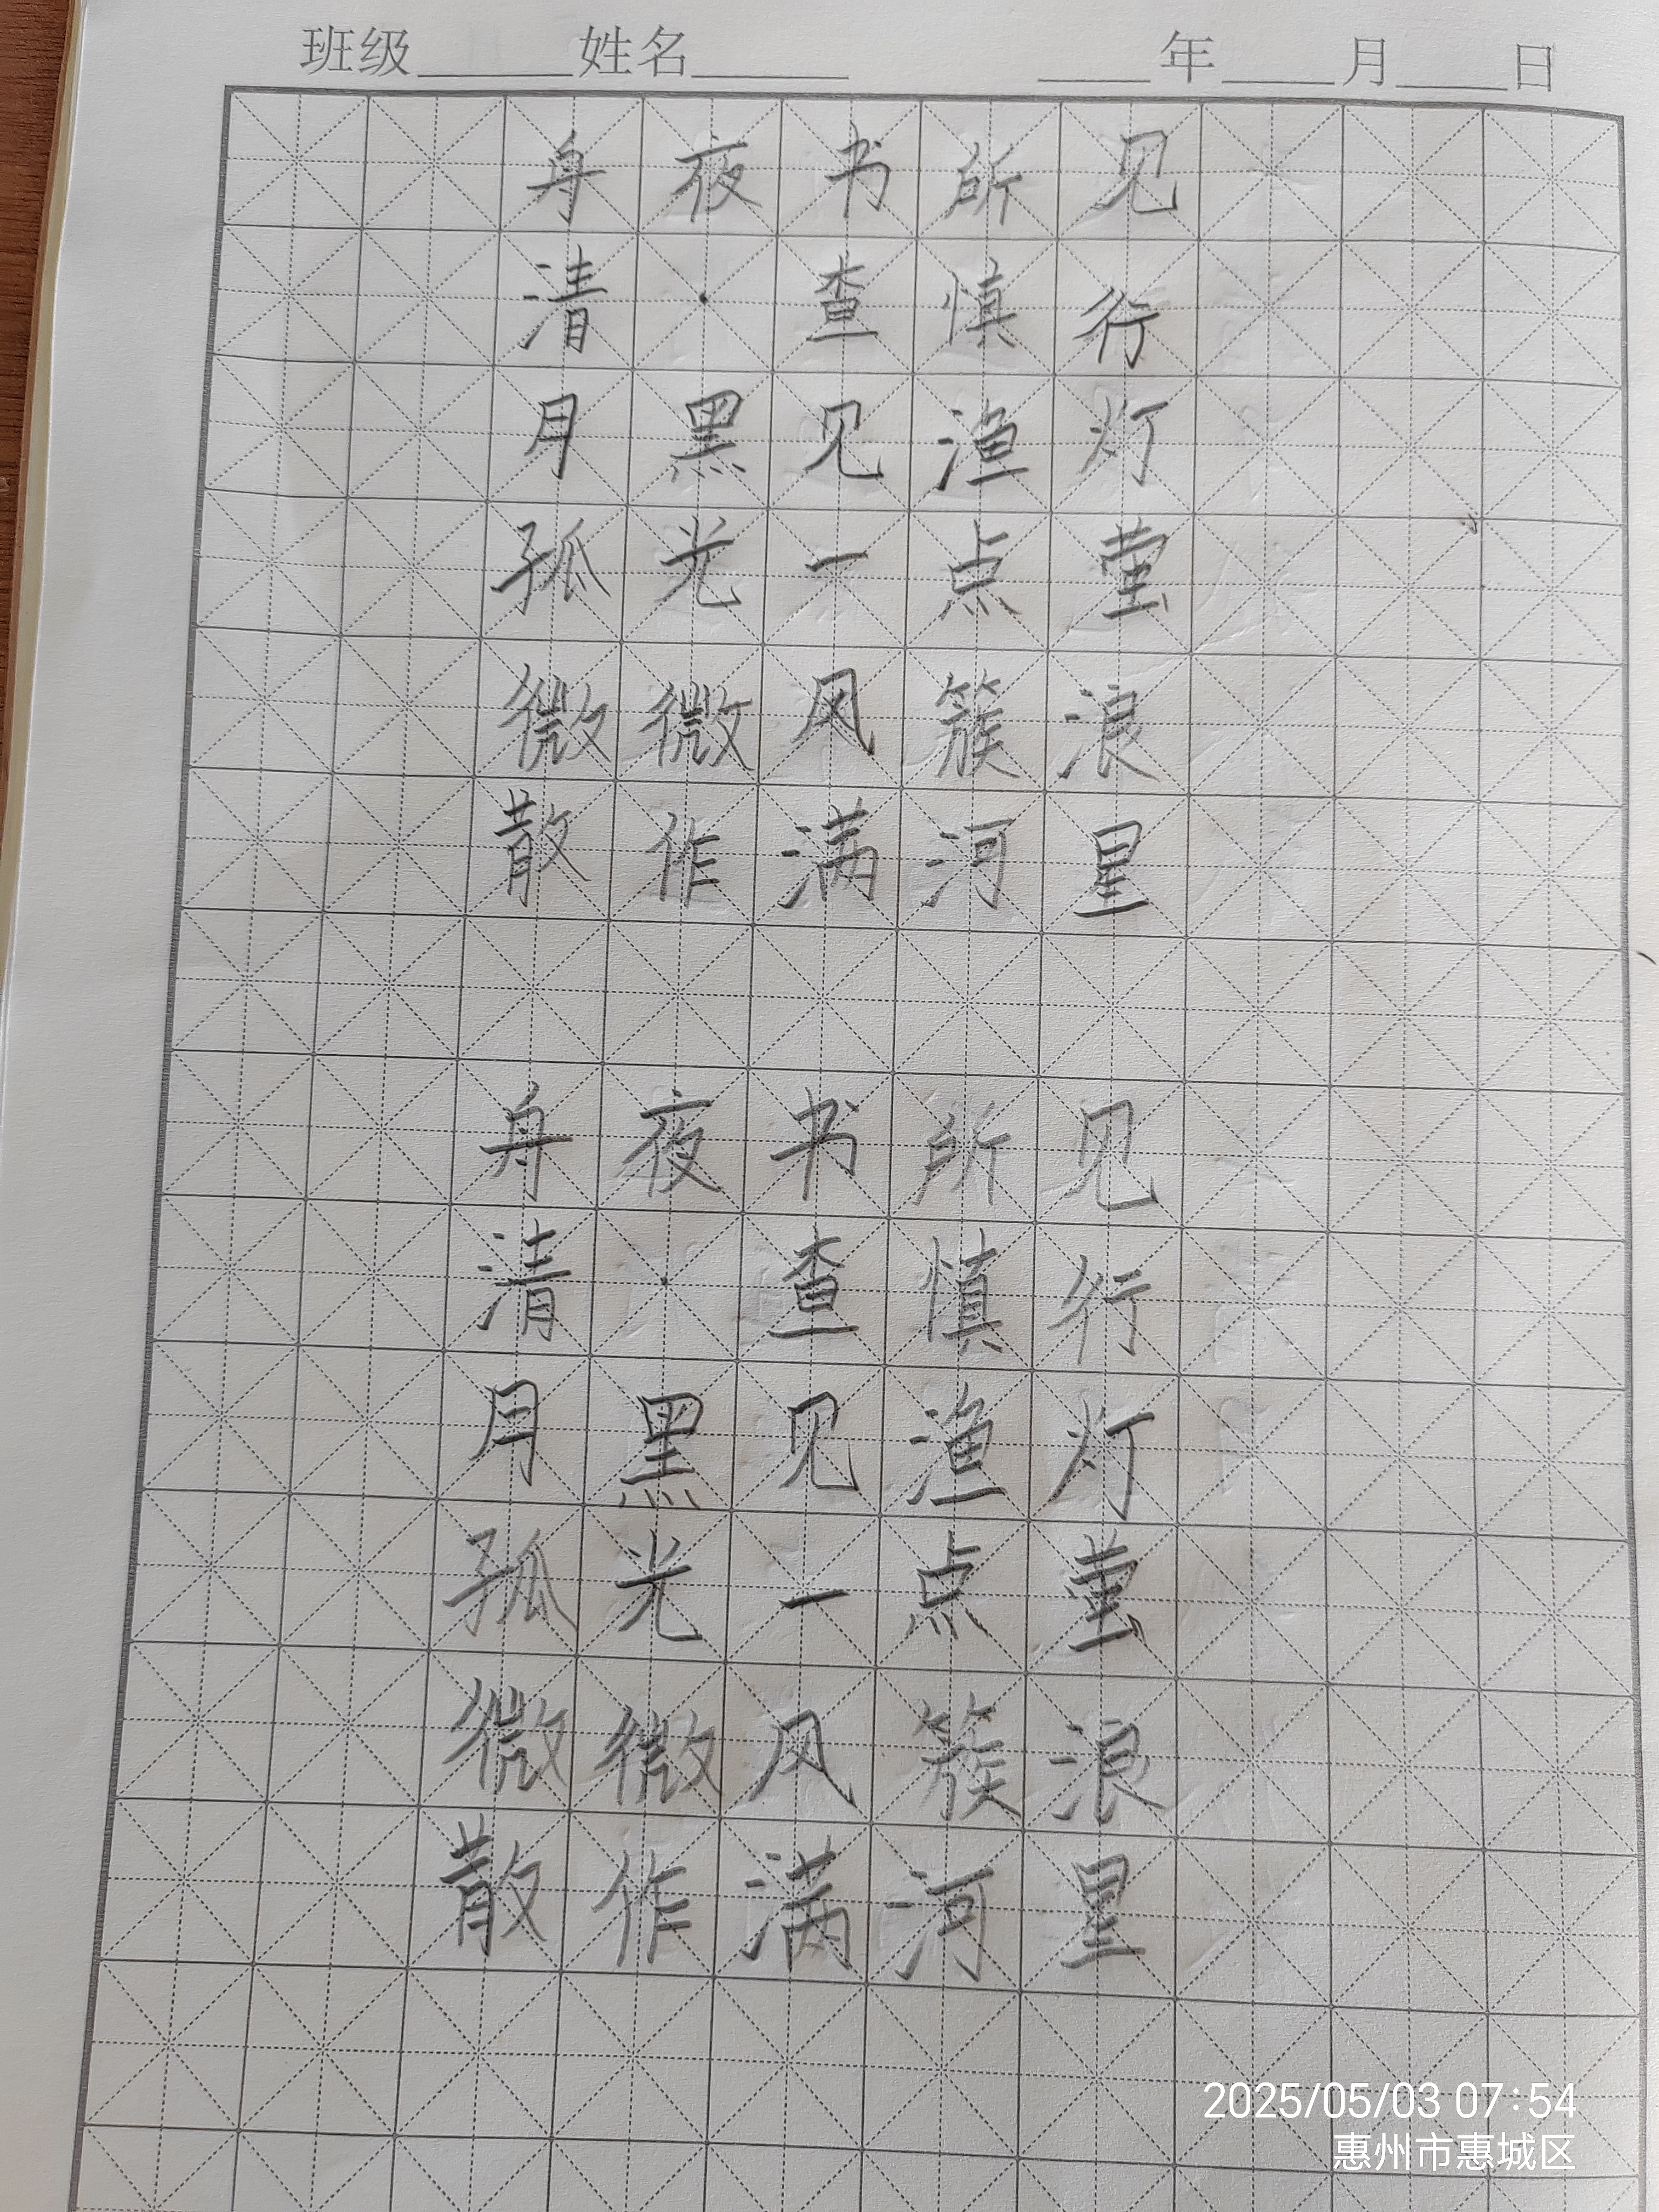 班级______姓名______ ____年____月____日
舟夜书所见
清·查慎行
月黑见渔灯
孤光一点萤
微微风簇浪
散作满河星
舟夜书所见
清·查慎行
月黑见渔灯
孤光一点萤
微微风簇浪
散作满河星
2025/05/03 07:54
惠州市惠城区